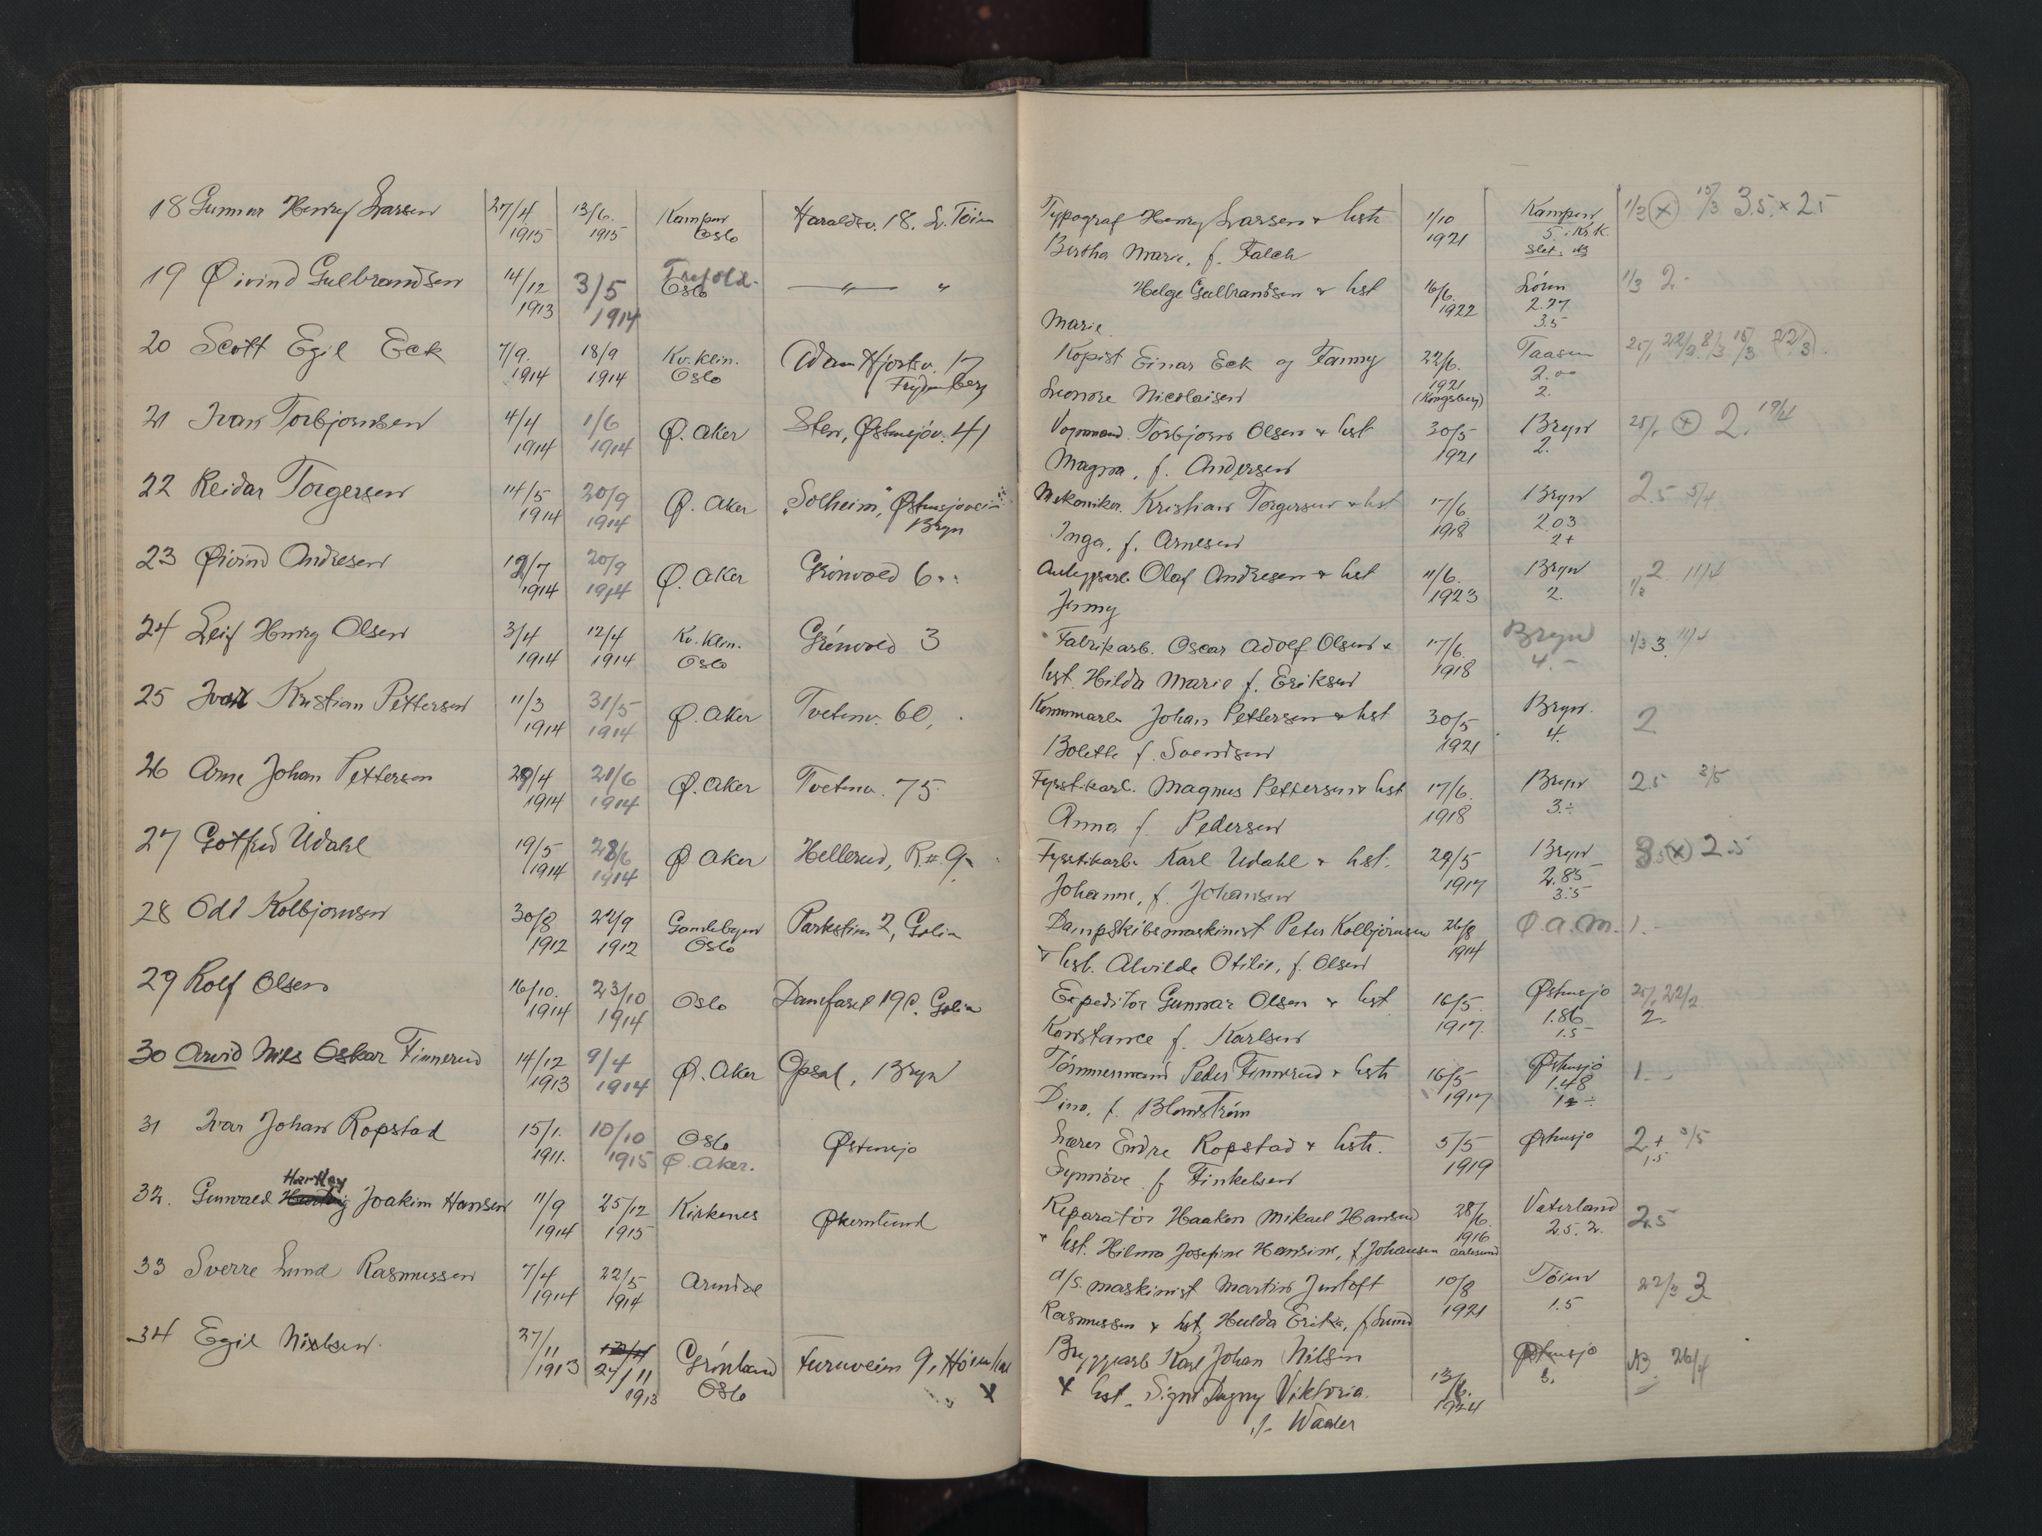 18 Gunnar Henry Larsen 27/4 1915 13/6. 1915 Kampen Oslo Haraldsv. 18. L. Tøien Typograf Henry Larsen & hstr 1/10 1921 Kampen 1/3 (x) 15/3 3.5. x 2.5
Bertha Marie, f. Falch 5 i Kr.k.
19 Øivind Gulbrandsen 14/12 1913 3/5 1914 Trefold. Oslo —„— „ Helge Gulbrandsen & hst 16/6. 1922 Løren 2.27 3.5 1/3 2.-
Marie
20 Scott Egil Eck 7/9. 1914 18/9 1914 Kv. klin. Oslo Adam Hjortsv. 17 Frydenberg Kopist Einar Eck og Fanny 22/6. 1921 (Kongsberg) Taasen 2.00 2. 25/1 22/2 8/3 15/3 (22/3).
Leonore Nicolaisen
21 Ivar Torbjørnsen 4/4 1914 1/6 1914 Ø. Aker Sten, Østensjøv. 41 Vognmand. Torbjørn Olsen & hst 30/5 1921 Bryn 2. 25/1 (x) 2. 19/4
Magna, f. Andersen
22 Reidar Torgersen 14/5 1914 20/9 1914 Ø. Aker „Solheim", Østensjøveien Bryn Mekaniker. Kristian Torgersen & hst 17/6 1918 Bryn 203 2+ 2.5 5/4
Inga, f. Arnesen
23 Øivind Andresen 12/7 1914 20/9 1914 Ø. Aker Grønvold 6 Anlegsarb. Olaf Andresen & hst 11/6. 1923 Bryn 2. 1/3 2. 11/4
Jenny
24 Leif Henry Olsen 3/4 1914 12/4 1914 Kv. klin. Oslo Grønvold 3 Fabrikarb. Oscar Adolf Olsen & 17/6. 1918 Bryn 4.- 1/3 3. 11/4
hst. Hilda Marie f. Eriksen
25 Ivar Kristian Pettersen 11/3 1914 31/5 1914 Ø. Aker Tvetenv. 60. Johan Pettersen & hst 30/5 1921 Bryn. 4. 2
Bolette f. Svendsen
26 Arne Johan Petterson 29/4 1914 21/6 1914 Ø. Aker Tvetenv. 75 Fyrstikarb. Magnus Pettersen & hst 17/6. 1918 Bryn 3÷ 2.5 3/5
Anna f. Pedersen
27 Gotfred Udahl 19/5 1914 28/6 1914 Ø Aker Hellerud, R.# 9. Fyrstikarb. Karl Udahl & hst. 29/5 1917 Bryn 2.85 3.5 (x) 2.5
Johanne, f. Johansen
28 Odd Kolbjørnsen 30/8 1912 22/9 1912 Gamlebyen Oslo Parkstien 2, Golia Dampskibsmaskinist Peter Kolbjørnsen 26/8 1914 Ø.a.M. 1.-
& hst. Alvilde Otilie, f. Olsen
29 Rolf Olsen 16/10. 1914 23/10 1914 Oslo Danefaret 19c. Golia Expeditør Gunnar Olsen & hst 16/5 1917. Østensjø 1.86 1.5 25/1 22/2 2.
Konstance f. Karlsen
30 Arvid Nils Oskar Finnerud 14/12 1913 9/4 1914 Ø. Aker Opsal, Bryn Tømmermand Peder Finnerud & hstr 16/5 1917 Østensjø 1.48 1.-
Dina, f. Blomstrøm
31 Ivar Johan Ropstad 15/1. 1911. 10/10 1915 Oslo Ø. Aker. Østensjø Lærer Endre Ropstad & hstr. 5/5 1919 Østensjø 2+ 3/5 1.5
Synnøve f. Finkelsen
32. Gunvald Hartley Joakim Hansen 11/9 1914 25/12 1915 Kirkenes Økernlund Reparatør Haakon Mikael Hansen 28/6. 1916 Aalesund Vaterland 2.5. 2. 2.5
& hst. Hilma Josefine Hansine, f. Johansen
33 Sverre Lund Rasmussen 7/4 1914 22/5 1914 Arendal d/s. maskinist Martin Justoft 10/8 1921 Tøien 1.5 22/3 3
Rasmussen & hst. Hulda Erika, f. Lund
34 Egil Nielsen. 27/11 1913 27/11 1913 Grønland Oslo Furuveien 9, Bryggearb Karl Johan Nilsen 13/6. 1924 Østensjø 3. NB. 26/4
& hst. Signe Dagny Viktoria.
f. Waaler